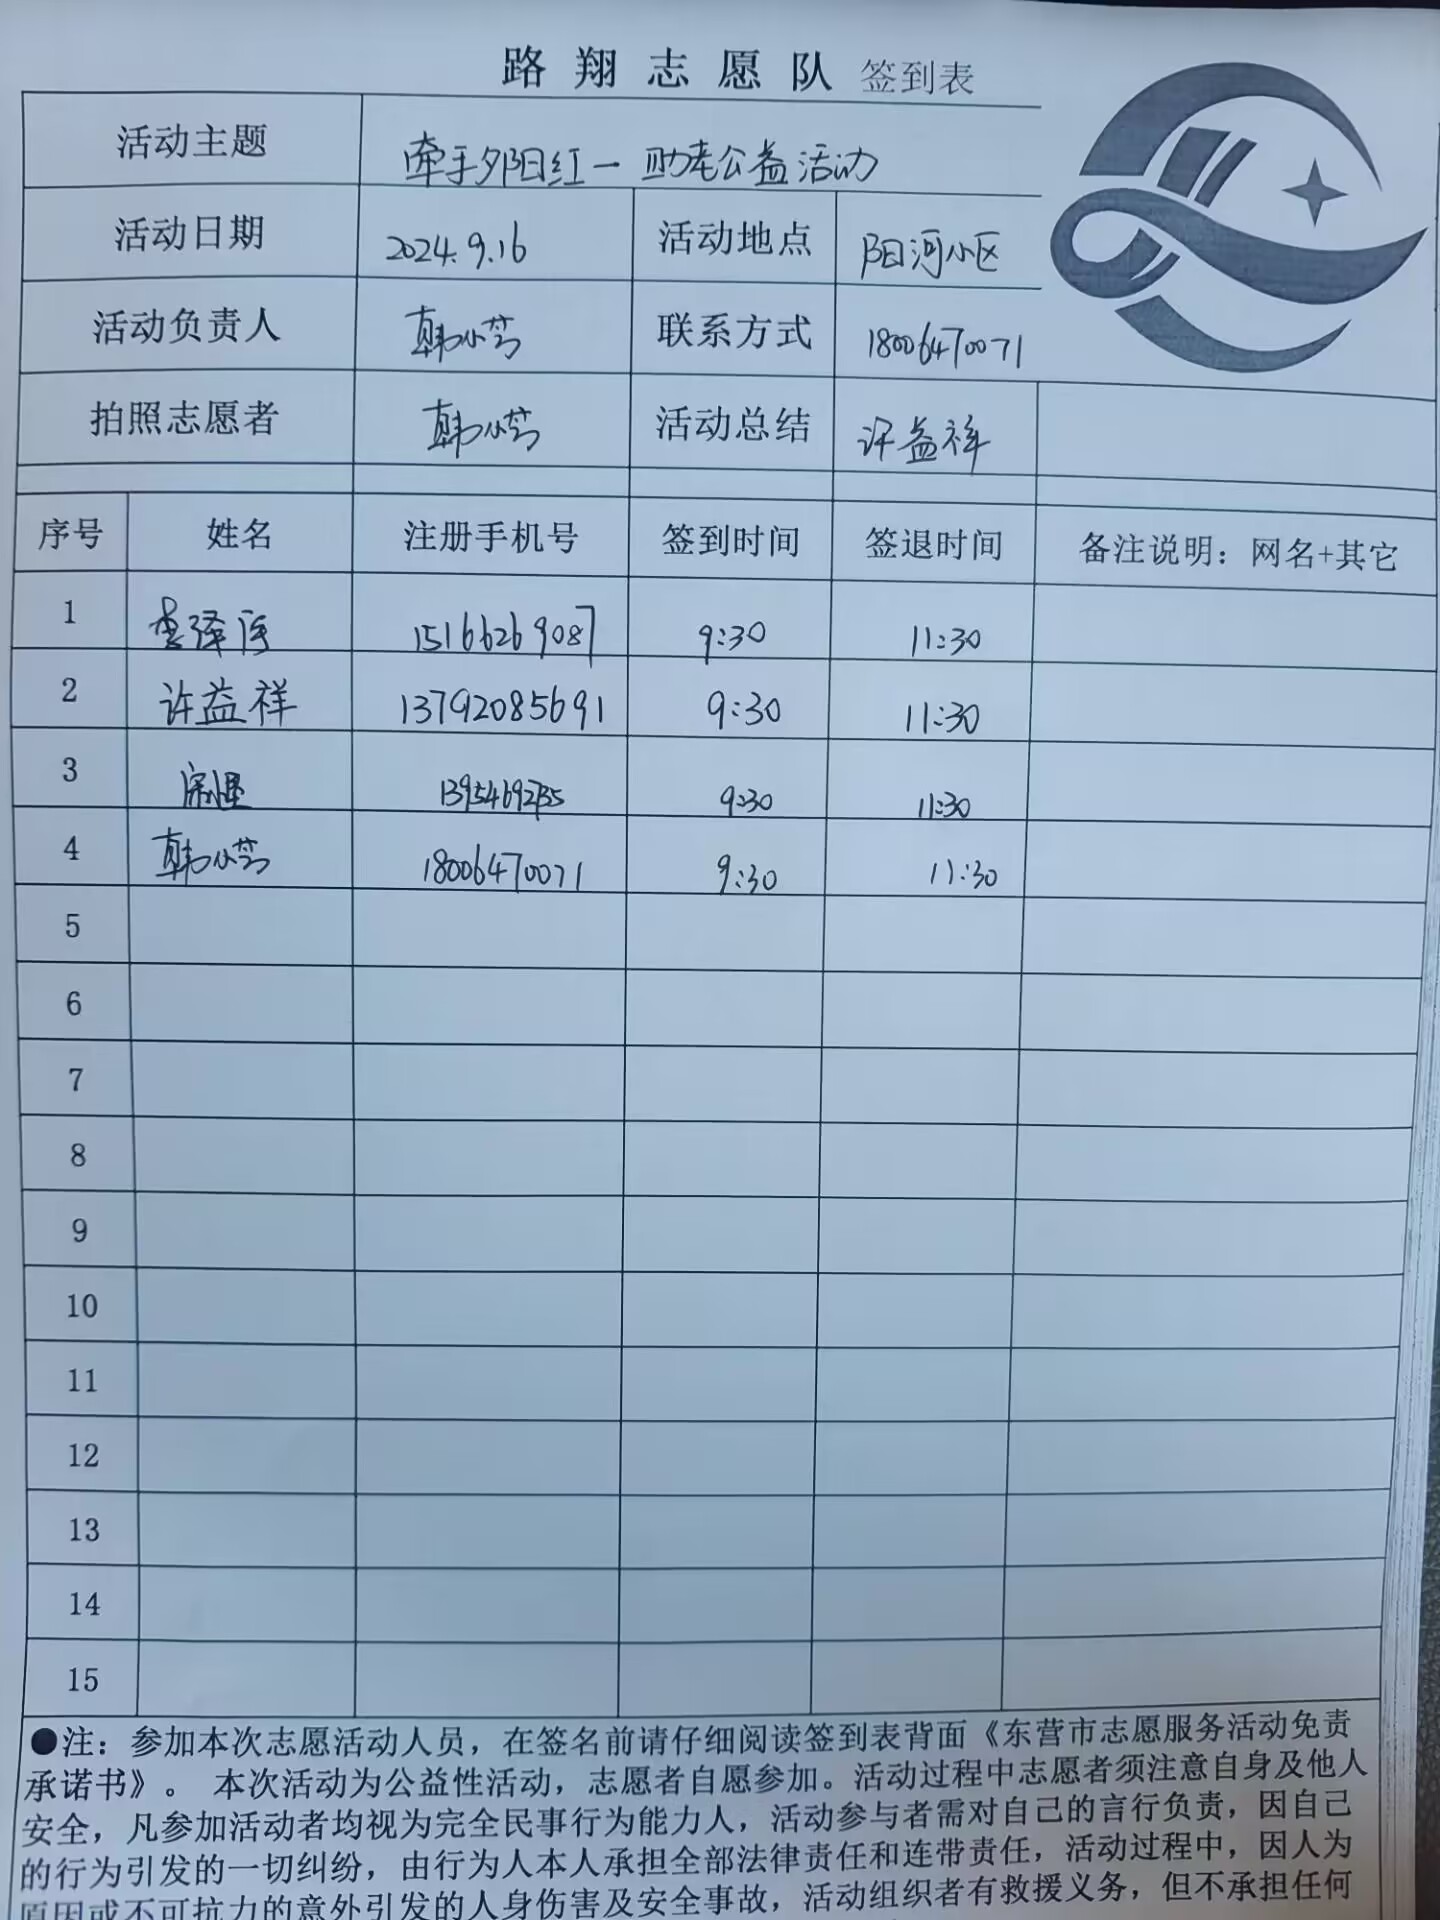 路翔志愿队 签到表
活动主题 牵手夕阳红一助老公益活动
活动日期 2024.9.16 活动地点 阳河小区
活动负责人 韩小芳 联系方式 18006470071
拍照志愿者 韩小芳 活动总结 许益祥
序号 姓名 注册手机号 签到时间 签退时间 备注说明：网名+其它
1 李泽 15166269087 9:30 11:30
2 许益祥 13792085691 9:30 11:30
3 9:30 11:30
4 韩小芳 18006470071 9:30 11:30
5
6
7
8
9
10
11
12
13
14
15
●注：参加本次志愿活动人员，在签名前请仔细阅读签到表背面《东营市志愿服务活动免责
承诺书》。 本次活动为公益性活动，志愿者自愿参加。活动过程中志愿者须注意自身及他人
安全，凡参加活动者均视为完全民事行为能力人，活动参与者需对自己的言行负责，因自己
的行为引发的一切纠纷，由行为人本人承担全部法律责任和连带责任，活动过程中，因人为
原因或不可抗力的意外引发的人身伤害及安全事故，活动组织者有救援义务，但不承担任何